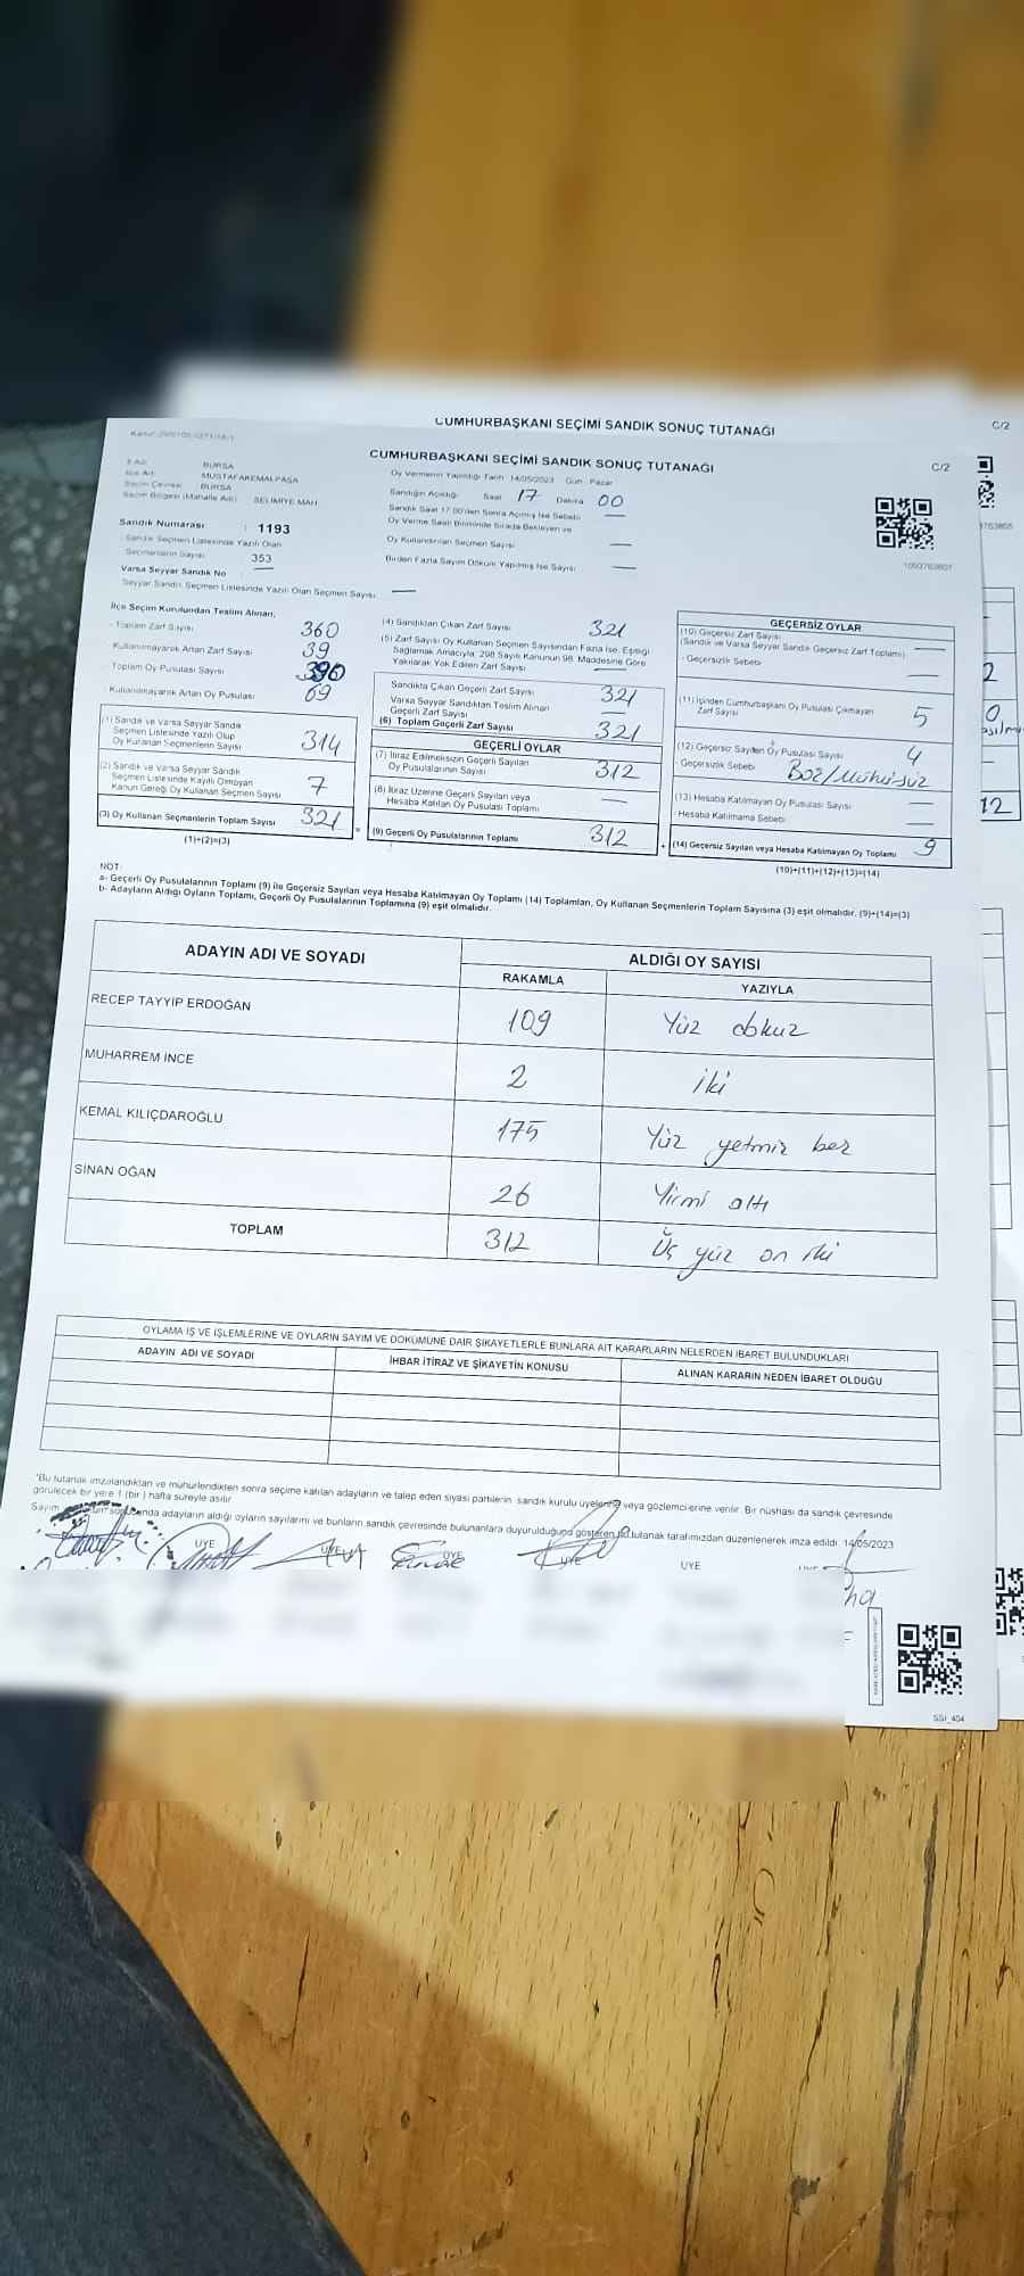 CUMHURBAŞKANI SEÇİMİ SANDIK SONUÇ TUTANAĞI
C/2
CUMHURBAŞKANI SEÇİMİ SANDIK SONUÇ TUTANAĞI
C/2
İl Adı: BURSA
İlçe Adı: MUSTAFAKEMALPAŞA
Seçim Çevresi: BURSA
Seçim Bölgesi (Mahalle Adı): SELİMİYE MAH.
Oy Vermenin Yapıldığı Tarih: 14/05/2023 Gün: Pazar
Sandığın Açıldığı Saat 17 Dakika 00
Sandık Saat 17.00'den Sonra Açılmış İse Sebebi —
Oy Verme Saati Bitiminde Sırada Bekleyen ve
Oy Kullandırılan Seçmen Sayısı —
Birden Fazla Sayım Döküm Yapılmış İse Sayısı —
Sandık Numarası : 1193
Sandık Seçmen Listesinde Yazılı Olan
Seçmenlerin Sayısı 353
Varsa Seyyar Sandık No —
Seyyar Sandık Seçmen Listesinde Yazılı Olan Seçmen Sayısı —
1050763807
İlçe Seçim Kurulundan Teslim Alınan,
- Toplam Zarf Sayısı 360
Kullanılmayarak Artan Zarf Sayısı 39
Toplam Oy Pusulası Sayısı 390
- Kullanılmayarak Artan Oy Pusulası 69
(1) Sandık ve Varsa Seyyar Sandık
Seçmen Listesinde Yazılı Olup
Oy Kullanan Seçmenlerin Sayısı 314
(2) Sandık ve Varsa Seyyar Sandık
Seçmen Listesinde Kayıtlı Olmayan
Kanun Gereği Oy Kullanan Seçmen Sayısı 7
(3) Oy Kullanan Seçmenlerin Toplam Sayısı 321
(1)+(2)=(3)
(4) Sandıktan Çıkan Zarf Sayısı 321
(5) Zarf Sayısı Oy Kullanan Seçmen Sayısından Fazla İse, Eşitliği
Sağlamak Amacıyla, 298 Sayılı Kanunun 98. Maddesine Göre
Yakılarak Yok Edilen Zarf Sayısı —
Sandıkta Çıkan Geçerli Zarf Sayısı 321
Varsa Seyyar Sandıktan Teslim Alınan
Geçerli Zarf Sayısı
(6) Toplam Geçerli Zarf Sayısı 321
GEÇERLİ OYLAR
(7) İtiraz Edilmeksizin Geçerli Sayılan
Oy Pusulalarının Sayısı 312
(8) İtiraz Üzerine Geçerli Sayılan veya
Hesaba Katılan Oy Pusulası Toplamı —
(9) Geçerli Oy Pusulalarının Toplamı 312
GEÇERSİZ OYLAR
(10) Geçersiz Zarf Sayısı
(Sandık ve Varsa Seyyar Sandık Geçersiz Zarf Toplamı) —
- Geçersizlik Sebebi —
(11) İçinden Cumhurbaşkanı Oy Pusulası Çıkmayan
Zarf Sayısı 5
(12) Geçersiz Sayılan Oy Pusulası Sayısı 4
- Geçersizlik Sebebi Boş/Mühürsüz
(13) Hesaba Katılmayan Oy Pusulası Sayısı —
- Hesaba Katılmama Sebebi —
(14) Geçersiz Sayılan veya Hesaba Katılmayan Oy Toplamı 9
(10)+(11)+(12)+(13)=(14)
NOT:
a- Geçerli Oy Pusulalarının Toplamı (9) ile Geçersiz Sayılan veya Hesaba Katılmayan Oy Toplamı (14) Toplamları, Oy Kullanan Seçmenlerin Toplam Sayısına (3) eşit olmalıdır. (9)+(14)=(3)
b- Adayların Aldığı Oyların Toplamı, Geçerli Oy Pusulalarının Toplamına (9) eşit olmalıdır.
ADAYIN ADI VE SOYADI
ALDIĞI OY SAYISI
RAKAMLA YAZIYLA
RECEP TAYYİP ERDOĞAN 109 Yüz dokuz
MUHARREM İNCE 2 iki
KEMAL KILIÇDAROĞLU 175 Yüz yetmiş beş
SİNAN OĞAN 26 Yirmi altı
TOPLAM 312 Üç yüz on iki
OYLAMA İŞ VE İŞLEMLERİNE VE OYLARIN SAYIM VE DÖKÜMÜNE DAİR ŞİKAYETLERLE BUNLARA AİT KARARLARIN NELERDEN İBARET BULUNDUKLARI
ADAYIN ADI VE SOYADI
İHBAR İTİRAZ VE ŞİKAYETİN KONUSU
ALINAN KARARIN NEDEN İBARET OLDUĞU
*Bu tutanak imzalandıktan ve mühürlendikten sonra seçime katılan adayların ve talep eden siyasi partilerin sandık kurulu üyelerine veya gözlemcilerine verilir. Bir nüshası da sandık çevresinde
görülecek bir yere 1 (bir) hafta süreyle asılır.
Sayım sonucunda adayların aldığı oyların sayılarını ve bunların sandık çevresinde bulunanlara duyurulduğunu gösteren bu tutanak tarafımızdan düzenlenerek imza edildi. 14/05/2023
ÜYE ÜYE ÜYE ÜYE ÜYE
SSI_404
2
0
12